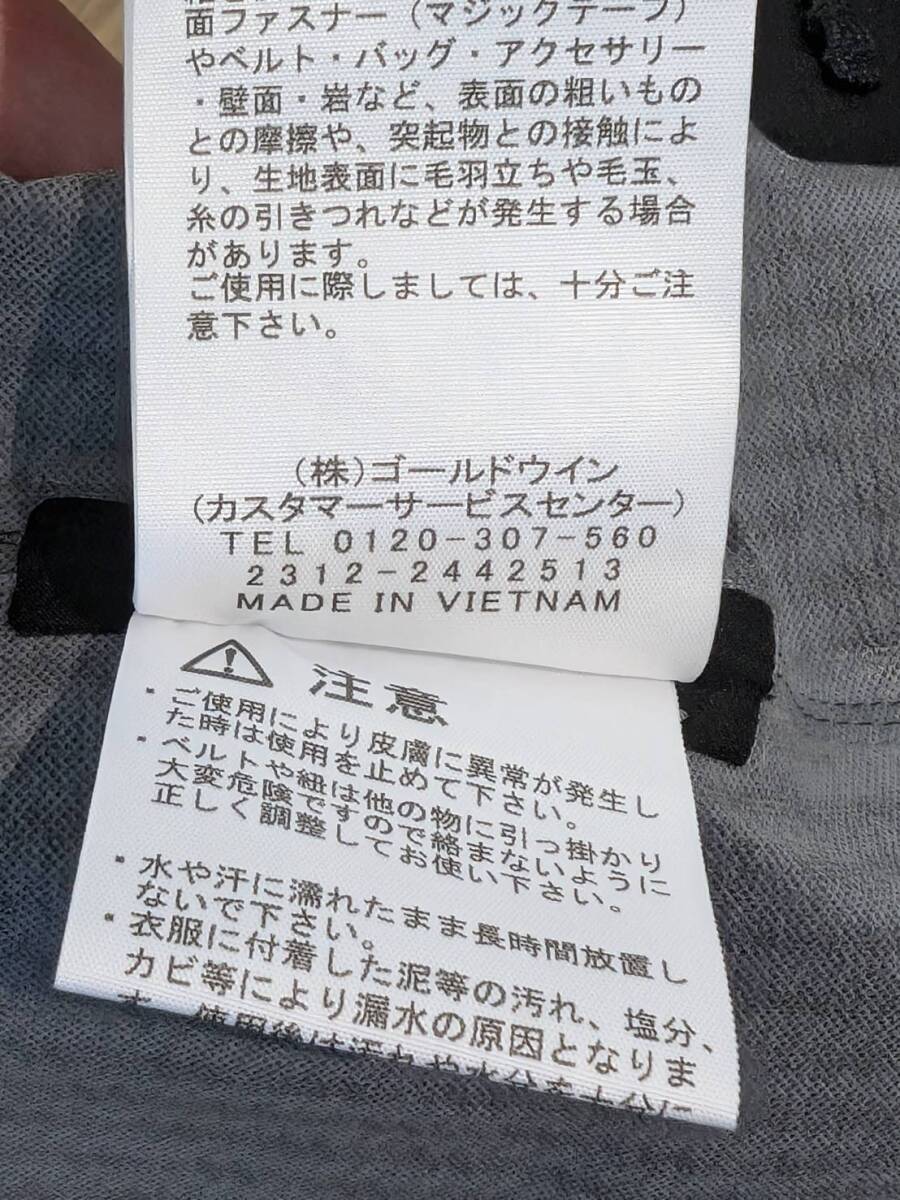 面ファスナー（マジックテープ）
やベルト・バッグ・アクセサリー
・壁面・岩など、表面の粗いもの
との摩擦や、突起物との接触によ
り、生地表面に毛羽立ちや毛玉、
糸の引きつれなどが発生する場合
があります。
ご使用に際しましては、十分ご注
意下さい。
(株)ゴールドウイン
(カスタマーサービスセンター)
TEL 0120-307-560
2312-2442513
MADE IN VIETNAM
注意
・ご使用により皮膚に異常が発生し
た時は使用を止めて下さい。
・ベルトや紐は他の物に引っ掛かり
大変危険ですので絡まないように
正しく調整してお使い下さい。
・水や汗に濡れたまま長時間放置し
ないで下さい。
・衣服に付着した泥等の汚れ、塩分、
カビ等により漏水の原因となりま
す。使用後は汚れや水分を十分に